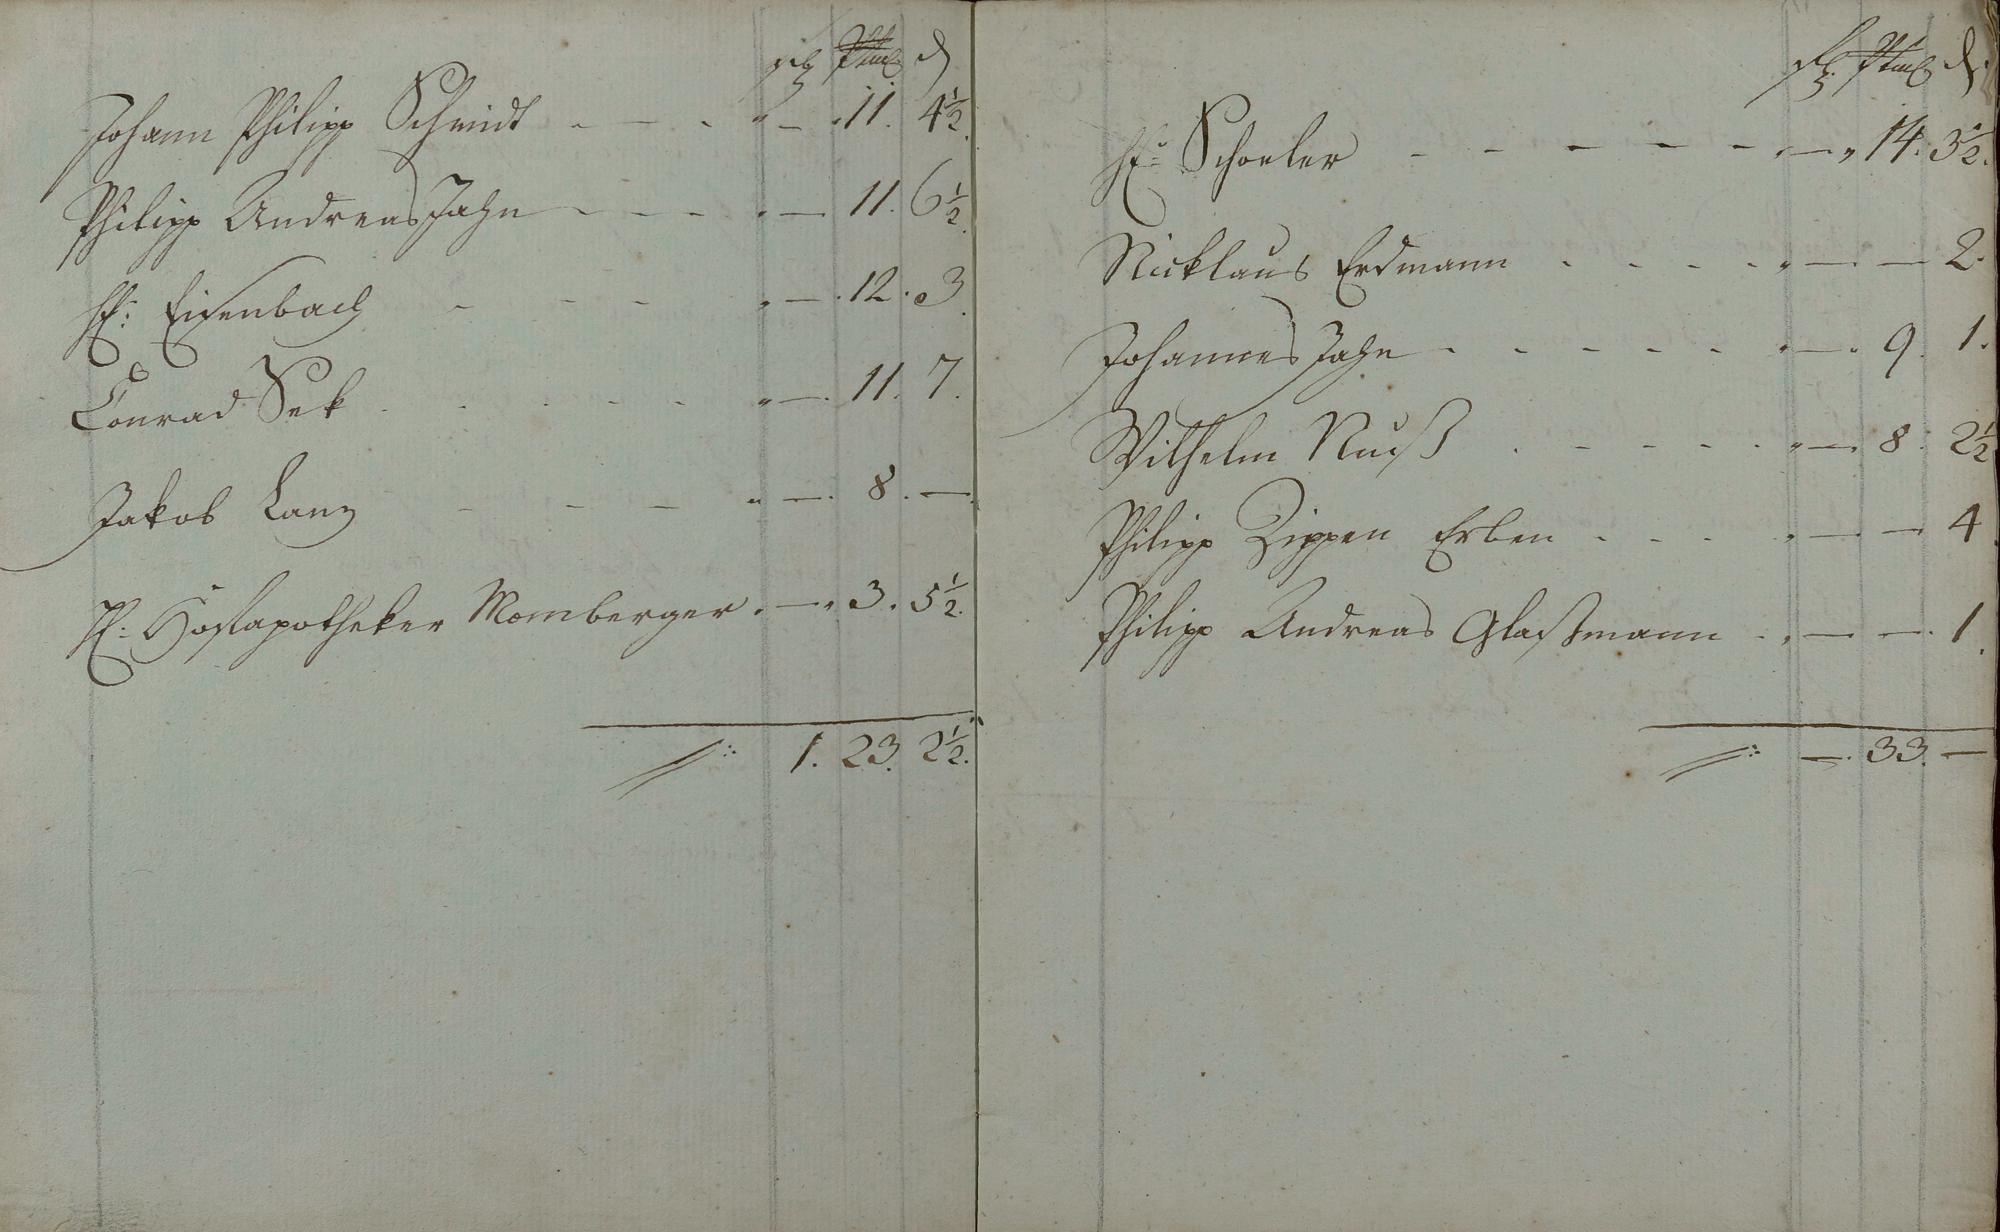 Johann Philipp Schmidt - - - " — . 11. 4½.
Philipp Andreas Jahn - - - . — 11. 6½.
H: Eisenbach - - - " — . 12. 3.
Conrad Sek . - - - - " — . 11. 7.
Jakob Lanz - - - " — . 8. —.
H: Hofapotheker Momberger . — " 3. 5½.
1. 23. 2½.
d.
H: Schoeler - - - - - . — " 14. 3½.
Nicklaus Erdmann . - - - " — . — 2.
Johannes Jahn . - - - - . — . 9. 1.
Wilhelm Nuß . - - - - " — 8. 2½
Philipp Zippen Erben . - - - . — — 4.
Philipp Andreas Glaßmann - . — — . 1.
— . 33. —